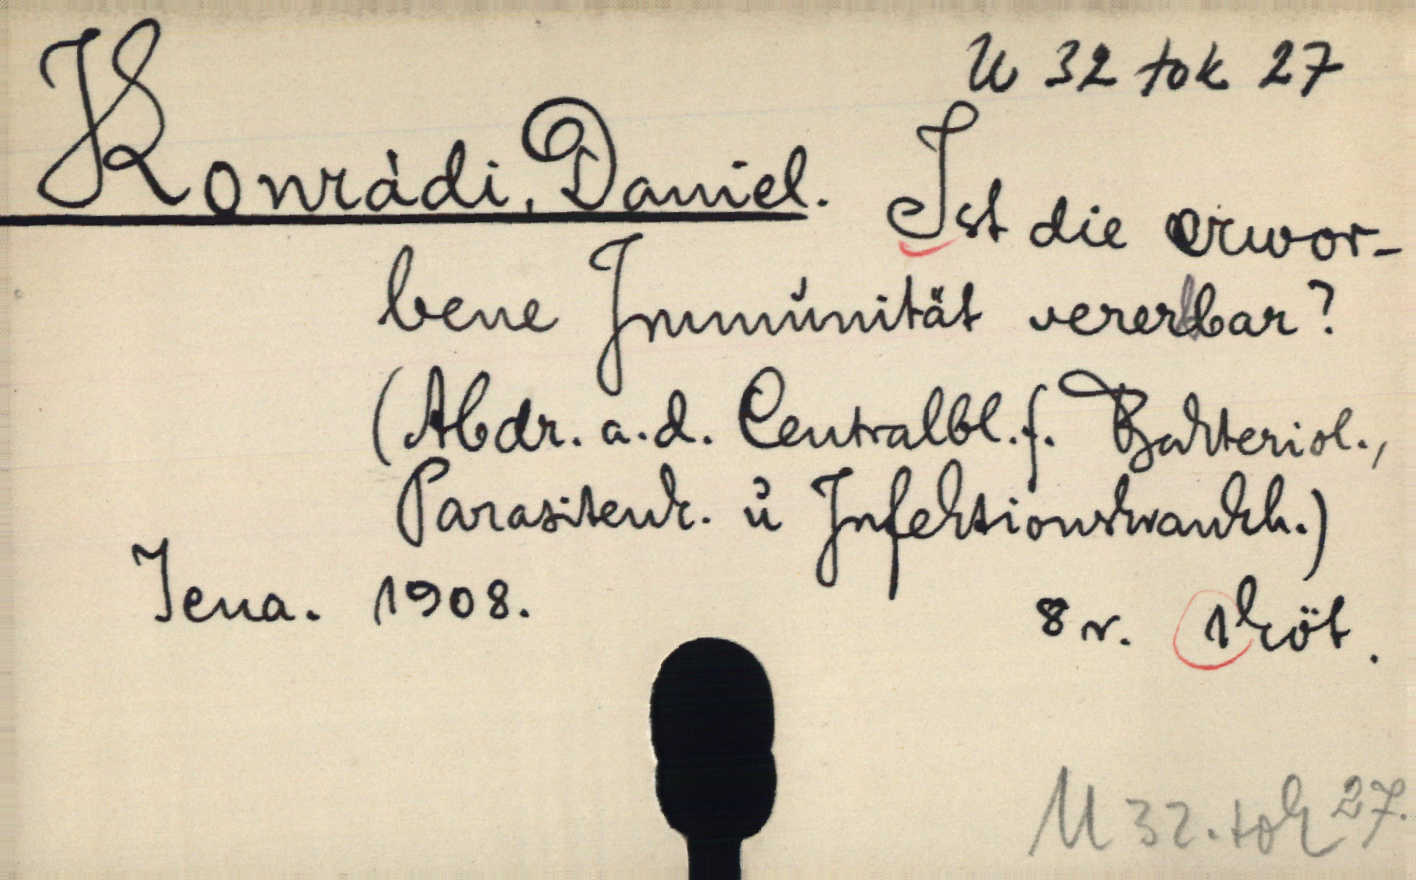 U 32 tok 27
Konràdi, Daniel. Ist die erwor-
bene Immúnität vererbar?
(Abdr. a. d. Centralbl. f. Bakteriol.,
Parasitenk. ú Infektionskrankh.)
Jena. 1908.
8 r. 1 köt.
U 32. tok 27.